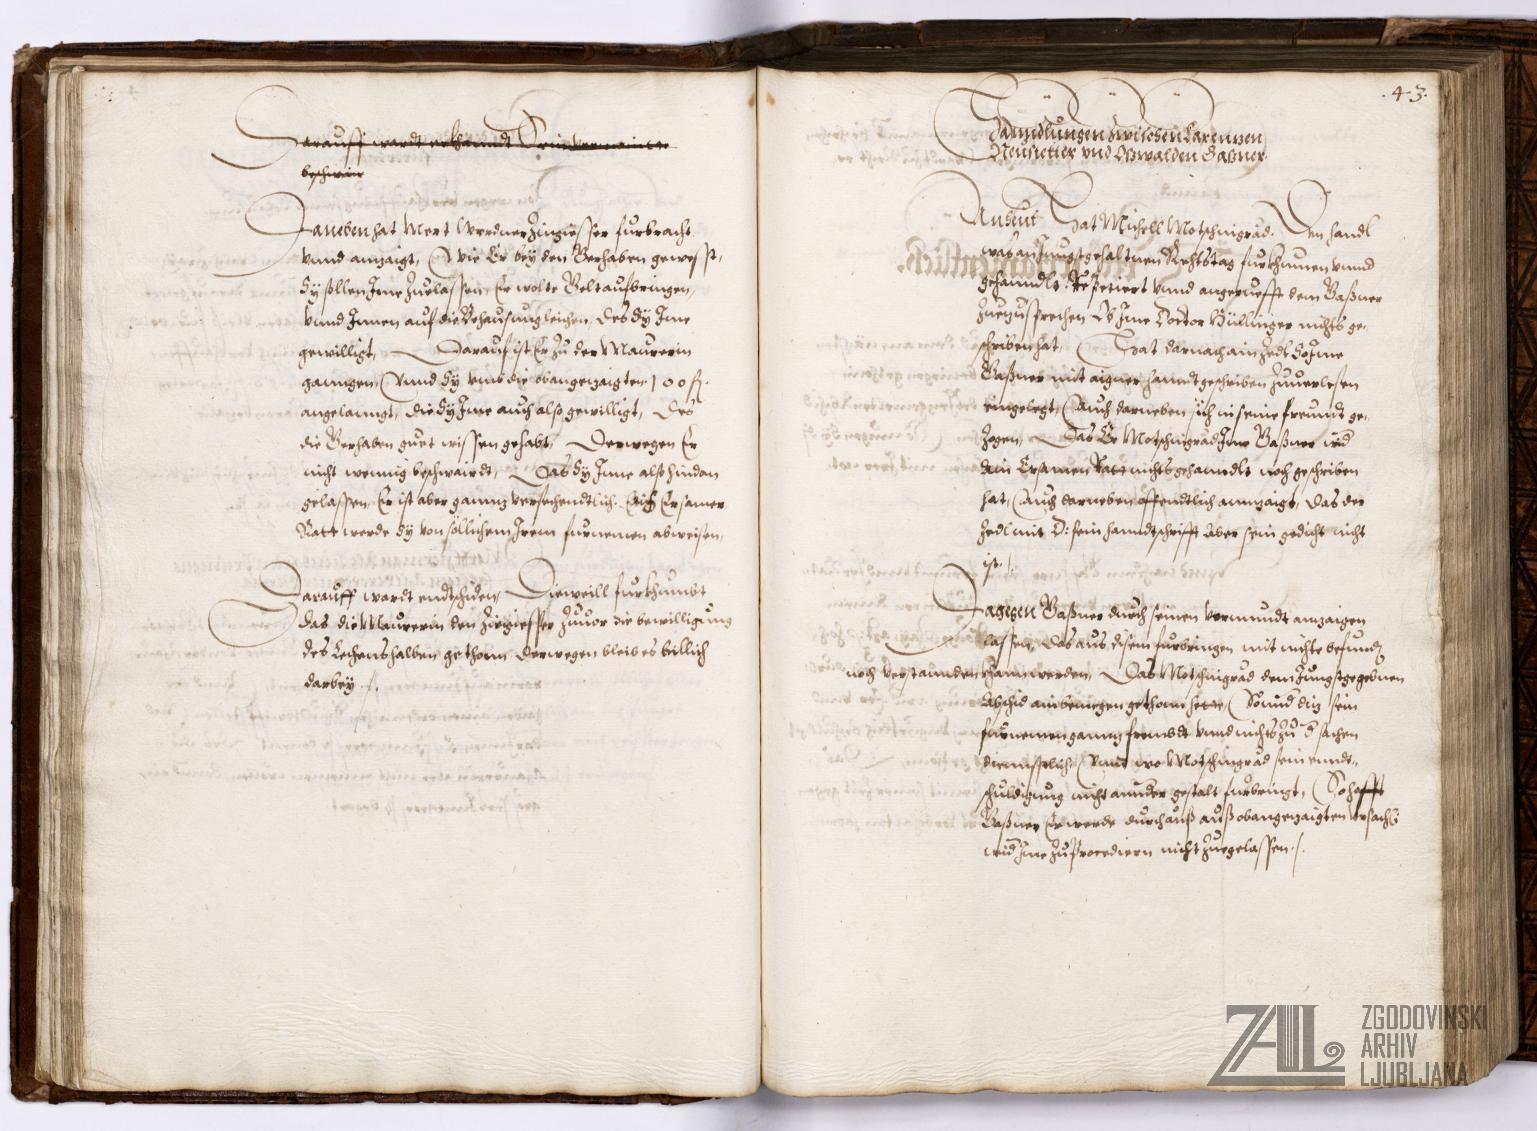 Darauff wardt erkhanndt
beschwär
Daneben hat Mert Werdner Zingiesser furbracht
vnnd anzaigt, Wie Er bey den Gerhaben gewesst,
dy sollen Ime zuelassen, Er wolte Gelt aufbringen,
vnnd Innen auf die Behausung leichen, des dy Ime
gewilligt, Darauf ist Er zu der Maurerin
ganngen, Vnnd dy vmb die obangezaigten 100 fl.
angelanngt, die dy Ime auch also gewilligt, Des
die Gerhaben guet wissen gehabt, Derwegen Er
nicht wennig beschwairdt, Das dy Inne also hindan
gelassen, Er ist aber ganntz versehendtlich. Ein Ersamer
Ratt werde dy von söllichem Irem furnemen abweisen,
Darauff wardt endtschiden, Dieweill furkhumbt
das die Maurerin den Zingiesser zuuor die bewilligung
des Leihens halben gethann, Derwegen bleib es billich
darbey ./.
.43.
Hanndlungen zwischen
Neusietter vnd Oswalden Gaßner.
Anheut Hat Michell Motschnigrad. Den handl
was an Jungstgehaltnen Rechtstag furkhumen vnnd
gehanndlt. Repetiert vnnd angeruefft dem Gaßner
zuezusprechen Ob Ime Doctor Hüllinger nichts ge-
schriben hat, Hat darnach ain Zedl so Ime
Gaßner mit aigner hanndt geschriben zuuerlesen
eingelegt, Auch darneben sich in seine freundt ge-
zogen, Das Er Motschnigrad Ime Gaßner wid
ain Ersamen Ratt nichts gehanndlt noch geschriben
hat, Auch darneben offendtlich annzaigt, Das der
Zedl mit D: sein hanndtschrifft Aber sein gedicht nicht
ist ./.
Dagegen Gaßner durch seinen vormundt anzaigen
lassen, Das aus disem furbringen mit nichte befundn
noch verstannden khann werden, Das Motschnigrad dem Jungstgegebnen
Abschid ain benuegen gethann hette, Sonnd diz sein
furnemen ganntz frembdt vnnd nichts zu d sachen
dienusstlich, Vnnd wo Motschnigrad sein enndt-
schuldigung nicht annder gestalt furbringt, So hofft
Gaßner Er werde durchauß auß obangezaigten vrsachn
wid Ime zu procediern nicht zuegelassen ./.
ZAL
ZGODOVINSKI
ARHIV
LJUBLJANA